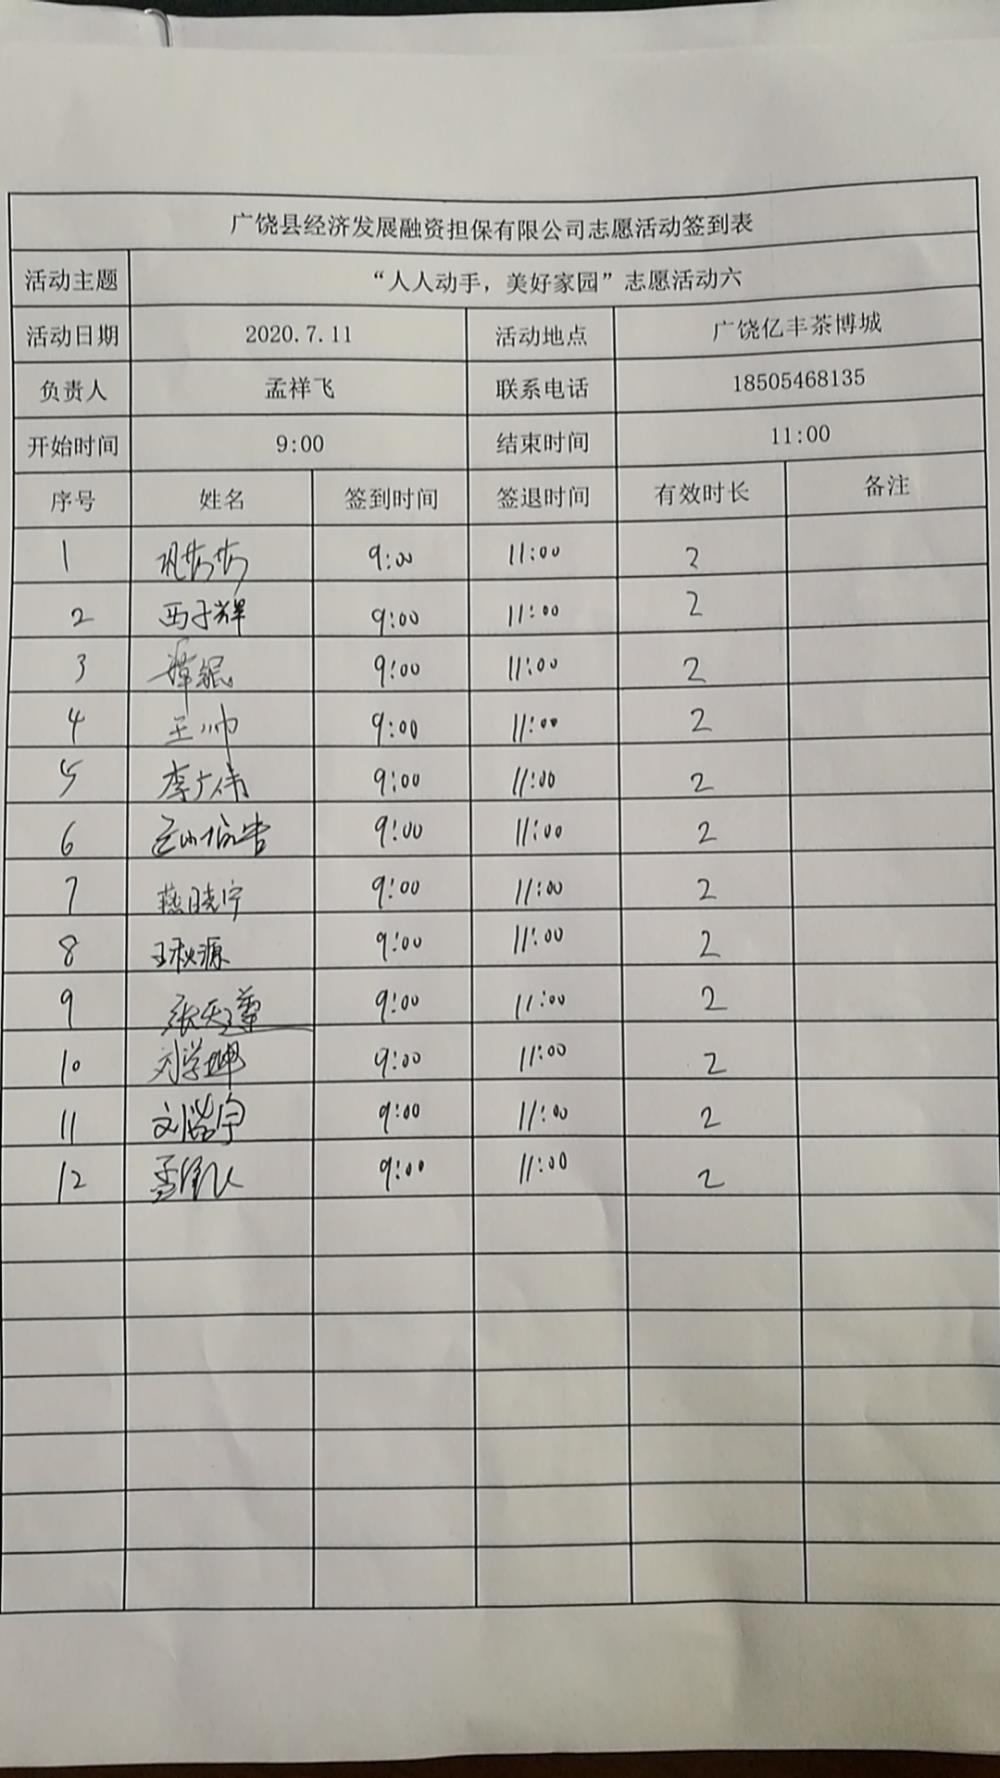 广饶县经济发展融资担保有限公司志愿活动签到表
活动主题 “人人动手，美好家园”志愿活动六
活动日期 2020.7.11 活动地点 广饶亿丰茶博城
负责人 孟祥飞 联系电话 18505468135
开始时间 9:00 结束时间 11:00
序号 姓名 签到时间 签退时间 有效时长 备注
1 9:00 11:00 2
2 西子辉 9:00 11:00 2
3 9:00 11:00 2
4 王帅 9:00 11:00 2
5 李广伟 9:00 11:00 2
6 9:00 11:00 2
7 燕晓宁 9:00 11:00 2
8 王秋源 9:00 11:00 2
9 9:00 11:00 2
10 刘学坤 9:00 11:00 2
11 9:00 11:00 2
12 9:00 11:00 2